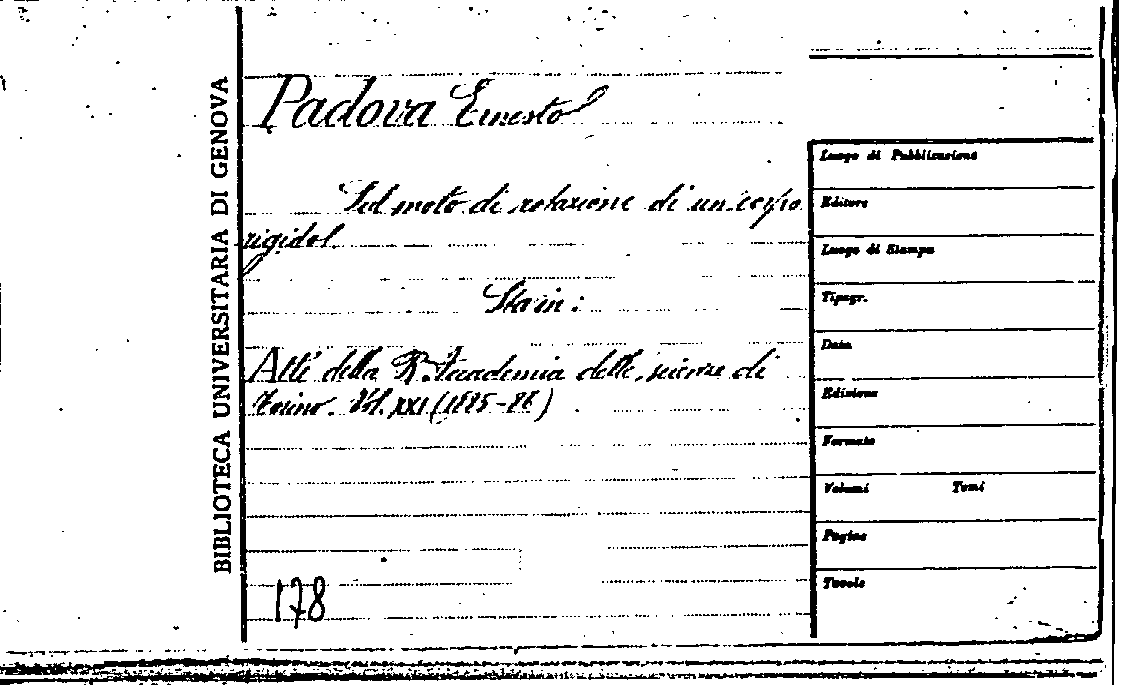 BIBLIOTECA UNIVERSITARIA DI GENOVA
Padova Ernesto
Sul moto di rotazione di un corpo
rigido.
Sta in:
Atti della R. Accademia delle scienze di
Torino. Vol. XXI (1885-86)
178
Luogo di Pubblicazione
Editore
Luogo di Stampa
Tipogr.
Data
Edizione
Formato
Volumi Tomi
Pagine
Tavole